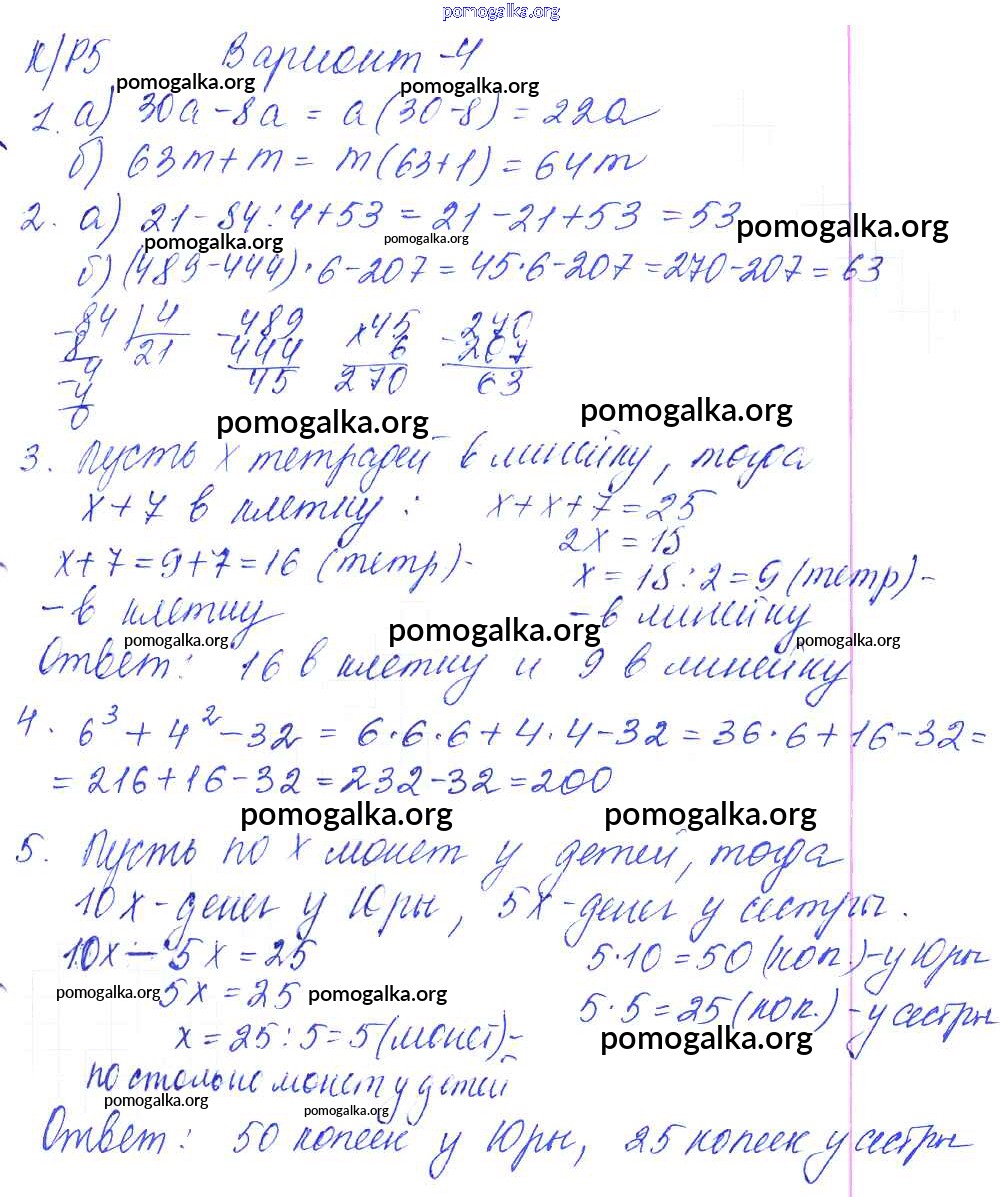 pomogalka.org
К/Р5 Вариант-4
pomogalka.org pomogalka.org
1. а) 30а - 8а = а(30-8) = 22а
б) 63m + m = m(63+1) = 64m
2. а) 21 - 84 : 4 + 53 = 21 - 21 + 53 = 53
pomogalka.org
pomogalka.org pomogalka.org
б) (489-444)·6-207 = 45·6-207 = 270-207 = 63
-84 | 4 -489 ×45 -270
8 21 444 6 207
4 45 270 63
-4
0
pomogalka.org pomogalka.org
3. Пусть х тетрадей в линейку, тогда
х+7 в клетку : х+х+7=25
2х = 18
х+7=9+7=16 (тетр)- х=18:2=9(тетр)-
-в клетку -в линейку
pomogalka.org pomogalka.org pomogalka.org
Ответ: 16 в клетку и 9 в линейку
4. 6³ + 4² - 32 = 6·6·6 + 4·4-32 = 36·6+16-32=
= 216+16-32 = 232-32 = 200
pomogalka.org pomogalka.org
5. Пусть по х монет у детей, тогда
10х-денег у Юры, 5х-денег у сестры.
10х - 5х = 25 5·10=50(коп.)-у Юры
pomogalka.org 5х = 25 pomogalka.org 5·5=25(коп.)-у сестры
х = 25:5=5(монет)- pomogalka.org
по стольно монет у детей
pomogalka.org pomogalka.org
Ответ: 50 копеек у Юры, 25 копеек у сестры